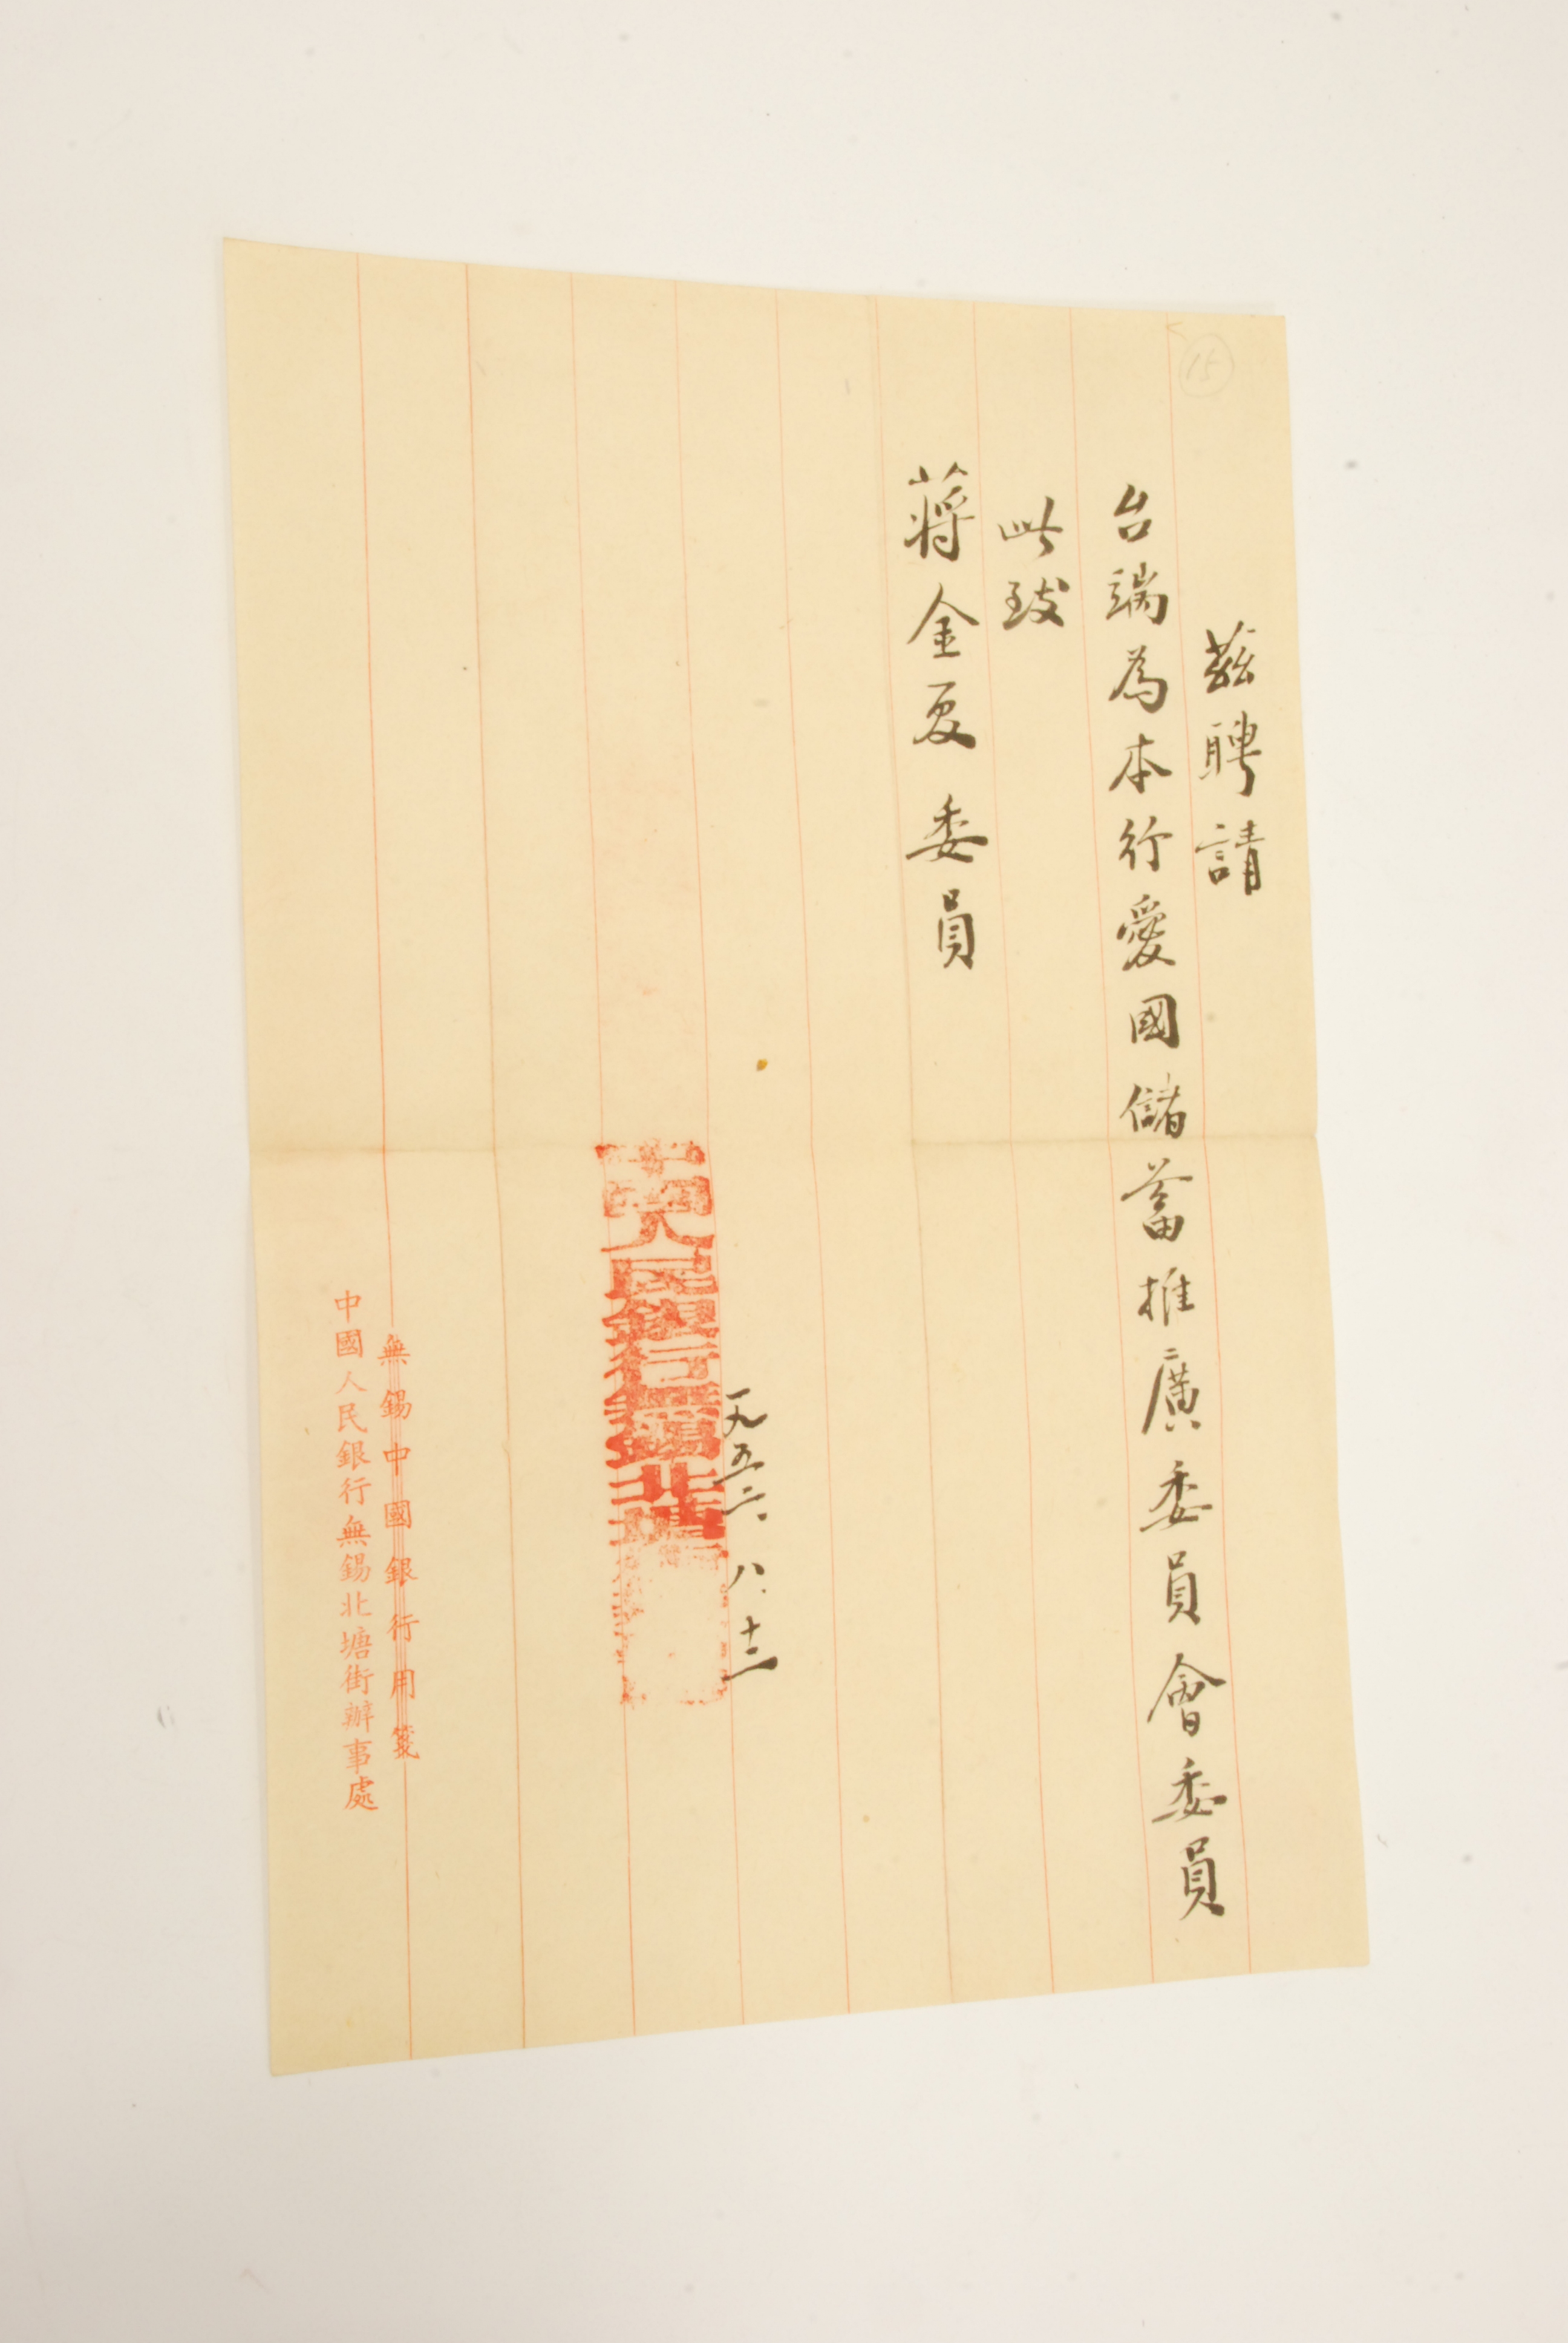 15
茲聘請
台端為本行愛國儲蓄推廣委員會委員
此致
蔣金夏委員
一九五二.八.十三
中國人民銀行無錫北塘
無錫中國銀行用箋
中國人民銀行無錫北塘街辦事處